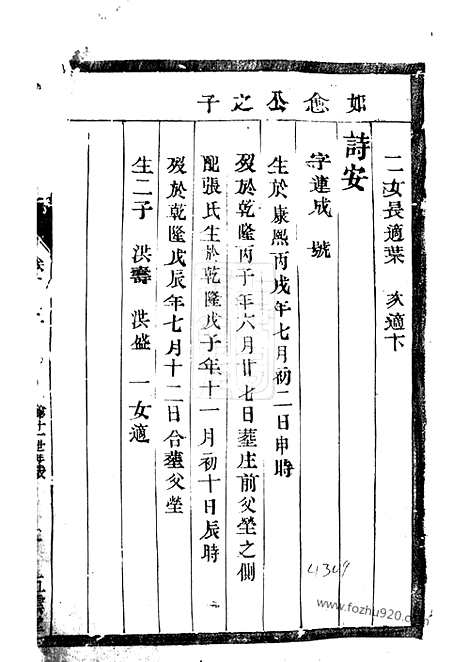 如愈公之子
二女長適葉 次適卞
詩安
字連成 號
生於康熙丙戌年七月初二日申時
歿於乾隆丙子年六月廿七日塟庄前父塋之側
配張氏生於乾隆戊子年十一月初十日辰時
歿於乾隆戊辰年七月十二日合塟父塋
生二子 洪壽 洪盛 一女適
4349
www.fozhu920.com